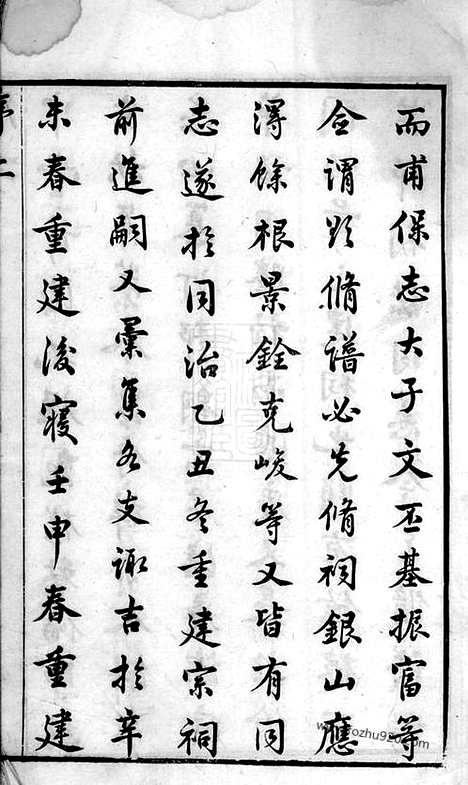 而甫保志大子文丕基振富等
僉謂欲脩譜必先脩祠銀山應
淂餘根景銓克峻等又皆有同
志遂扵同治乙丑冬重建宗祠
前進嗣又彙集各支諏吉扵辛
未春重建後寢壬申春重建
序 二